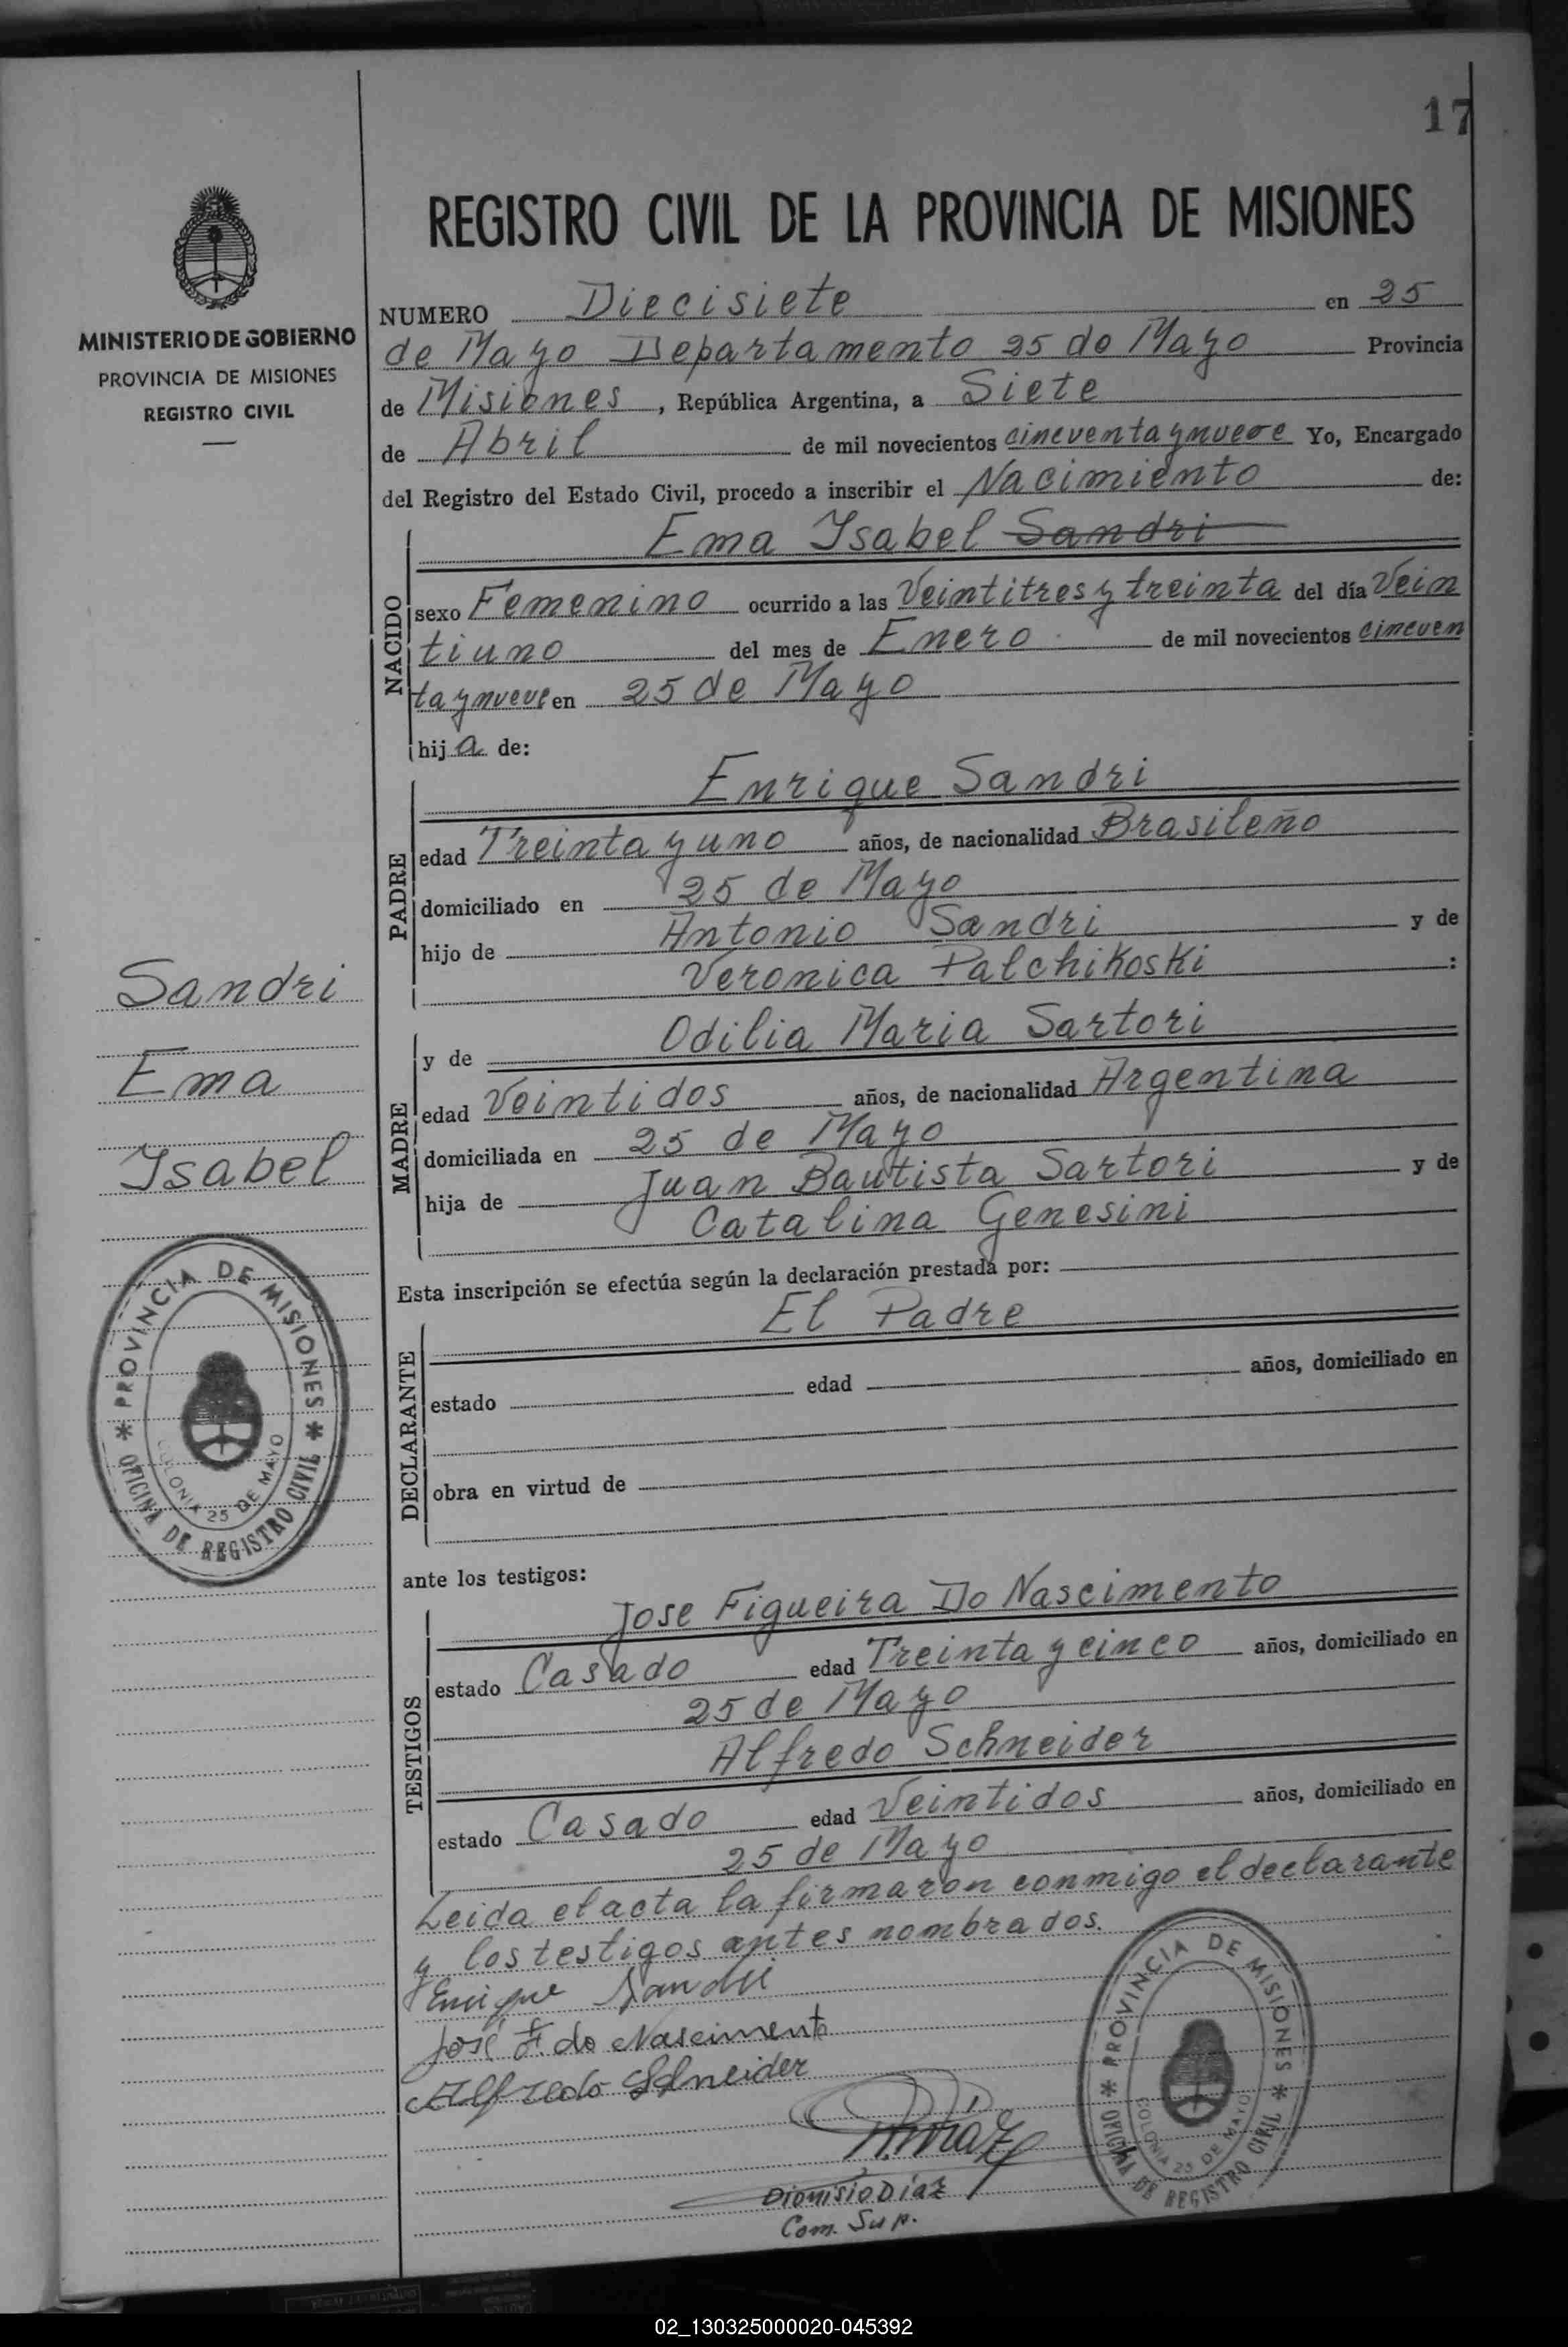 17
MINISTERIO DE GOBIERNO
PROVINCIA DE MISIONES
REGISTRO CIVIL
REGISTRO CIVIL DE LA PROVINCIA DE MISIONES
NUMERO Diecisiete en 25
de Mayo Departamento 25 de Mayo Provincia
de Misiones, República Argentina, a Siete
de Abril de mil novecientos cincuenta y nueve Yo, Encargado
del Registro del Estado Civil, procedo a inscribir el Nacimiento de:
NACIDO
Ema Ysabel Sandri
sexo Femenino ocurrido a las Veintitres y treinta del día Vein
tiuno del mes de Enero de mil novecientos cincuen
ta y nueve en 25 de Mayo
hija de:
PADRE
Enrique Sandri
edad Treinta y uno años, de nacionalidad Brasileño
domiciliado en 25 de Mayo
hijo de Antonio Sandri y de
Veronica Palchikoski :
MADRE
y de Odilia Maria Sartori
edad Veintidos años, de nacionalidad Argentina
domiciliada en 25 de Mayo
hija de Juan Bautista Sartori y de
Catalina Genesini
Esta inscripción se efectúa según la declaración prestada por:
DECLARANTE
El Padre
estado edad años, domiciliado en
obra en virtud de
ante los testigos:
TESTIGOS
Jose Figueira Do Nascimento
estado Casado edad Treinta y cinco años, domiciliado en
25 de Mayo
Alfredo Schneider
estado Casado edad Veintidos años, domiciliado en
25 de Mayo
Leida el acta la firmaron conmigo el declarante
y los testigos antes nombrados.
Enrique Sandri
José F. do Nascimento
Alfredo Schneider
Dionisio Diaz
Com. Sup.
Sandri
Ema
Ysabel
PROVINCIA DE MISIONES
COLONIA 25 DE MAYO
OFICINA DE REGISTRO CIVIL
PROVINCIA DE MISIONES
COLONIA 25 DE MAYO
OFICINA DE REGISTRO CIVIL
02_130325000020-045392